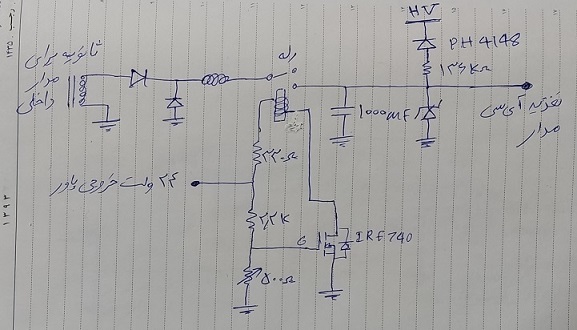 HV
PH 4148
۱۳۶ kΩ
رله
ثانویه برای
مدار
داخلی
1000MF
تغزیه آی سی
مدار
۳۳۰Ω
۲۴ ولت خروجی پاور
۲,۲K
G
IRF740
۵۰۰Ω
۱۳۹۲